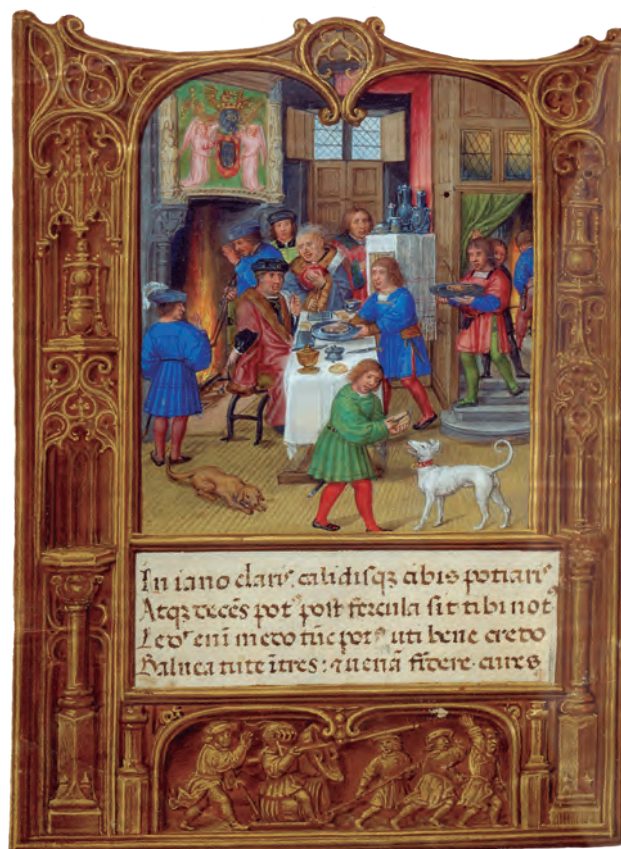 In iano claris calidisqz cibis potiaris
Atqz decēs pot⁹ post fercula sit tibi not⁹
Ledit enī medo tūc pot⁹ uti bene credo
Balnea tute ītres: ⁊ venā fīdere cures